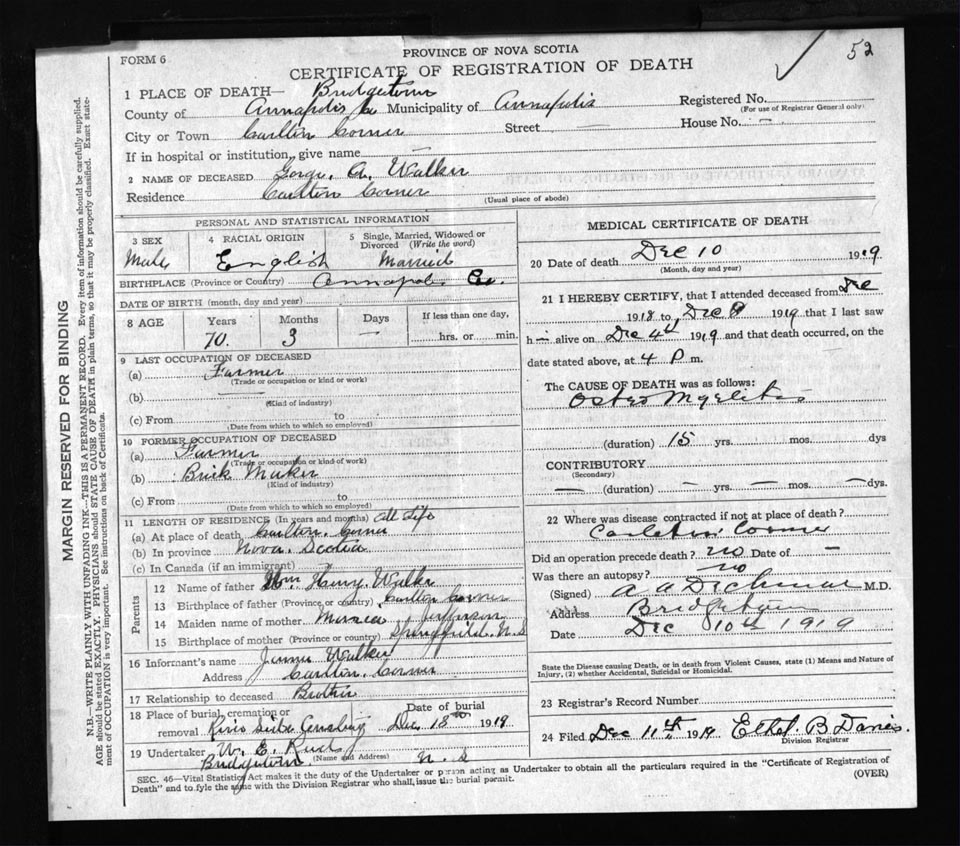 52
PROVINCE OF NOVA SCOTIA
FORM 6
CERTIFICATE OF REGISTRATION OF DEATH
1 PLACE OF DEATH— Bridgetown
County of Annapolis Co Municipality of Annapolis Registered No.
(For use of Registrar General only)
City or Town Carlton Corner Street — House No. —
If in hospital or institution, give name —
2 NAME OF DECEASED George. A. Walker
Residence Carlton Corner
(Usual place of abode)
PERSONAL AND STATISTICAL INFORMATION
3 SEX 4 RACIAL ORIGIN 5 Single, Married, Widowed or Divorced (Write the word)
Male English Married
BIRTHPLACE (Province or Country) Annapolis Co.
DATE OF BIRTH (month, day and year)
8 AGE Years Months Days If less than one day,
70. 3 — hrs. or min.
9 LAST OCCUPATION OF DECEASED
(a) Farmer
(Trade or occupation or kind or work)
(b) —
(Kind of industry)
(c) From to
(Date from which to which so employed)
10 FORMER OCCUPATION OF DECEASED
(a) Farmer
(Trade or occupation or kind of work)
(b) Brick Maker
(Kind of industry)
(c) From to
(Date from which to which so employed)
11 LENGTH OF RESIDENCE (In years and months) All Life
(a) At place of death Carlton Corner
(b) In province Nova. Scotia
(c) In Canada (if an immigrant)
Parents
12 Name of father Wm Henry. Walker
13 Birthplace of father (Province or country) Carlton Corner
14 Maiden name of mother Jefferson
15 Birthplace of mother (Province or country) Springfield. N.S
16 Informant's name Walker
Address Carlton. Corner
17 Relationship to deceased Brother
18 Place of burial, cremation or removal River Side Date of burial Dec 18th 1919
19 Undertaker W. E. Reed
Bridgetown (Name and Address) N. S
MEDICAL CERTIFICATE OF DEATH
20 Date of death Dec 10 1919
(Month, day and year)
21 I HEREBY CERTIFY, that I attended deceased from Dec
1918 to Dec 9 1919 that I last saw
h— alive on Dec 4th 1919 and that death occurred, on the
date stated above, at 4 P m.
The CAUSE OF DEATH was as follows:
Osteo Myelitis
(duration) 15 yrs. mos. dys
CONTRIBUTORY
(Secondary)
— (duration) — yrs. — mos. — dys.
22 Where was disease contracted if not at place of death?
Carleton Corner
Did an operation precede death? no Date of —
Was there an autopsy? no
(Signed) M.D.
Address Bridgetown
Date Dec 10th 1919
State the Disease causing Death, or in death from Violent Causes, state (1) Means and Nature of
Injury, (2) whether Accidental, Suicidal or Homicidal.
23 Registrar's Record Number
24 Filed Dec 11th 1919 Ethel B Davis.
Division Registrar
SEC. 46—Vital Statistics Act makes it the duty of the Undertaker or person acting as Undertaker to obtain all the particulars required in the "Certificate of Registration of
Death" and to fyle the same with the Division Registrar who shall issue the burial permit.
(OVER)
MARGIN RESERVED FOR BINDING
N.B.—WRITE PLAINLY WITH UNFADING INK—THIS IS A PERMANENT RECORD. Every item of information should be carefully supplied.
AGE should be stated EXACTLY. PHYSICIANS should STATE CAUSE OF DEATH in plain terms, so that it may be properly classified. Exact state-
ment of OCCUPATION is very important. See instructions on back of Certificate.